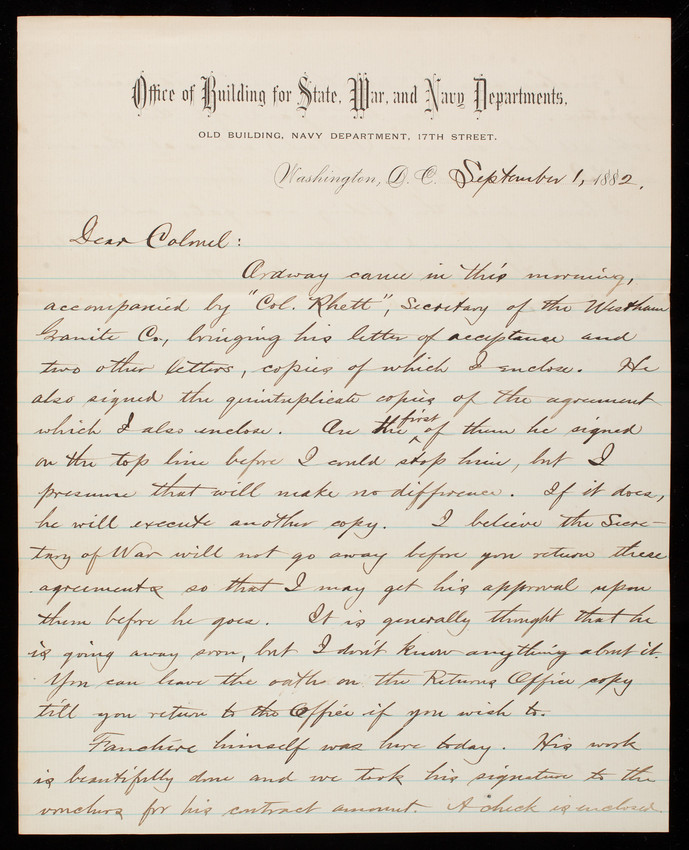 Office of Building for State, War, and Navy Departments,
OLD BUILDING, NAVY DEPARTMENT, 17TH STREET.
Washington, D. C. September 1, 1882.
Dear Colonel:
Ordway came in this morning,
accompanied by "Col. Rhett", Secretary of the Westham
Granite Co., bringing his letter of acceptance and
two other letters, copies of which I enclose. He
also signed the quintuplicate copies of the agreement
which I also enclose. On the first of them he signed
on the top line before I could stop him, but I
presume that will make no difference. If it does,
he will execute another copy. I believe the Secre-
tary of War will not go away before you return these
agreements so that I may get his approval upon
them before he goes. It is generally thought that he
is going away soon, but I don't know anything about it.
You can leave the oath on the Returns Office copy
till you return to the Office if you wish to.
himself was here today. His work
is beautifully done and we took his signature to the
vouchers for his contract amount. A check is enclosed